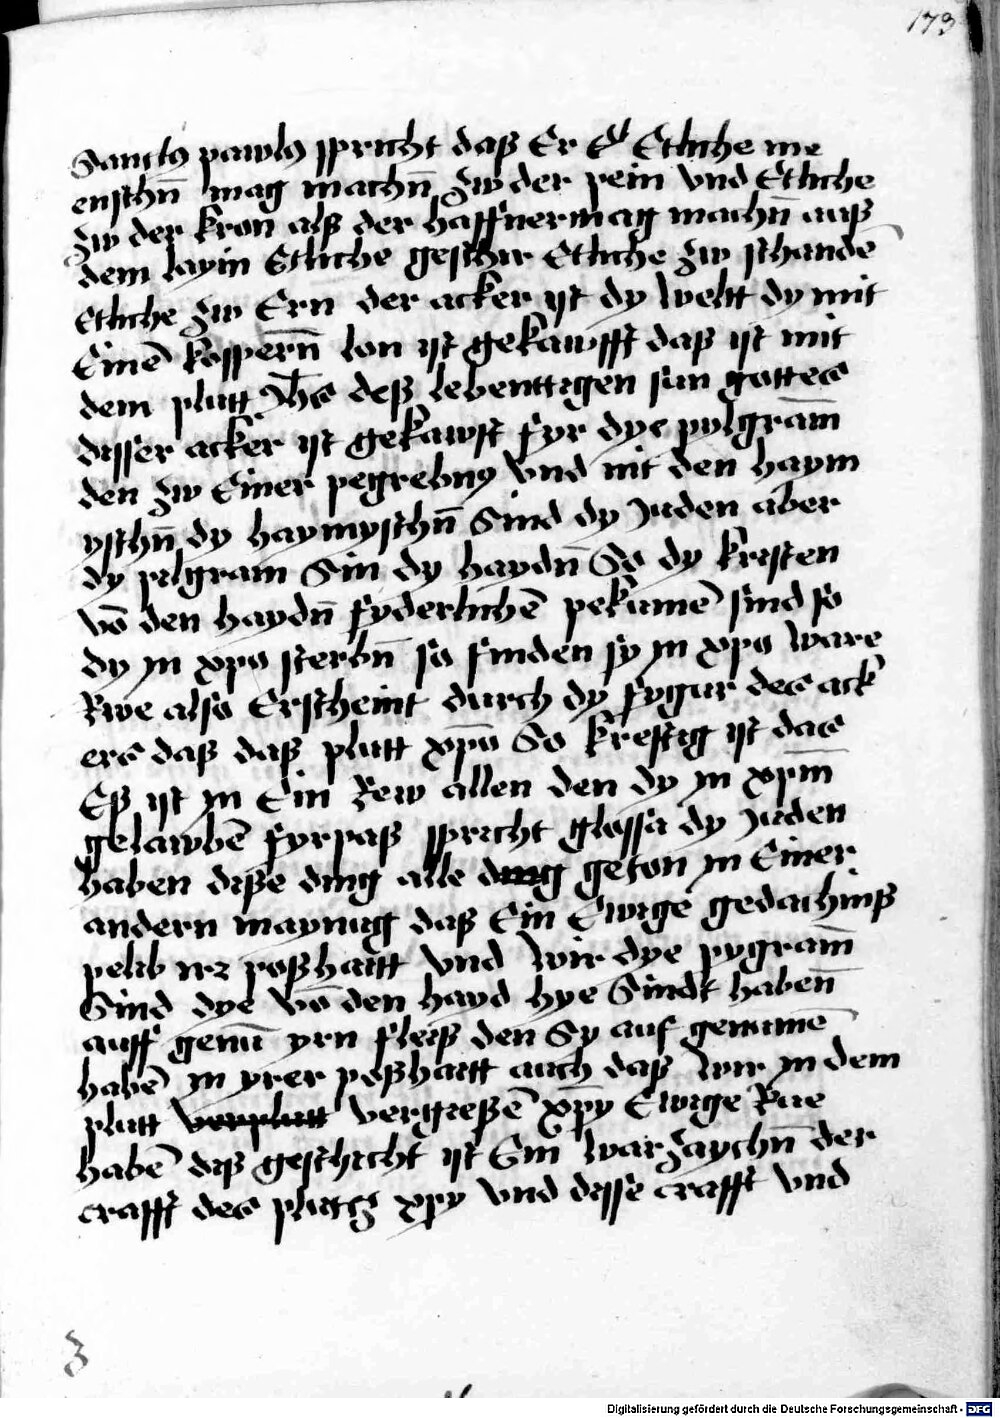 173
Sanctus pawlus spricht daß Er Etliche me
enschn̄ mag machn̄ zw der pein vnd Etliche
zw der kron alß der haffner mag machn̄ auß
dem laym Etliche geschir Etliche zw schandē
Etliche zw Ern der acker ist dy weltt dy mit
Einē kosperñ lon ist gekawfft daß ist mit
dem plutt Jhs deß lebenttigen sun gottes
disser acker ist gekawft fyr dye pylgram̄
den zw Einer pegrebnus vnd nit den haym
yschn̄ dy haymyschn̄ Sind dy Juden aber
dy pilgram Sin dy haydn̄ So dy kristen
vō den haydn̄ fyderlichē pekumē sind so
dy yn xp̄o sterbn̄ so finden sy yn xp̄o ware
Rwe also Erscheint durch dy fygur des ack
ers daß daß plutt xp̄o So kreftig ist das
Eß ist yn Ein Rew allen den dy yn xp̄m
gelawbē fyrpaß spricht glossa dy Juden
haben diße ding alle geton yn Einer
andern maynug daß Ein Ewige gedachniß
pelib irz poßhaitt vnd wir dye pygram̄
Sind dye vō den hayd hye Sindt haben̄
auff genū yrn fleiß den Sy auf genumē
habē yn yrer poßhaitt auch daß wir yn dem
plutt verplutt vergießē xp̄y Ewige Rue
habē diß geschicht ist Ein warzaychn̄ der
crafft des plutz xpy vnd disse crafft vnd
Digitalisierung gefördert durch die Deutsche Forschungsgemeinschaft - DFG